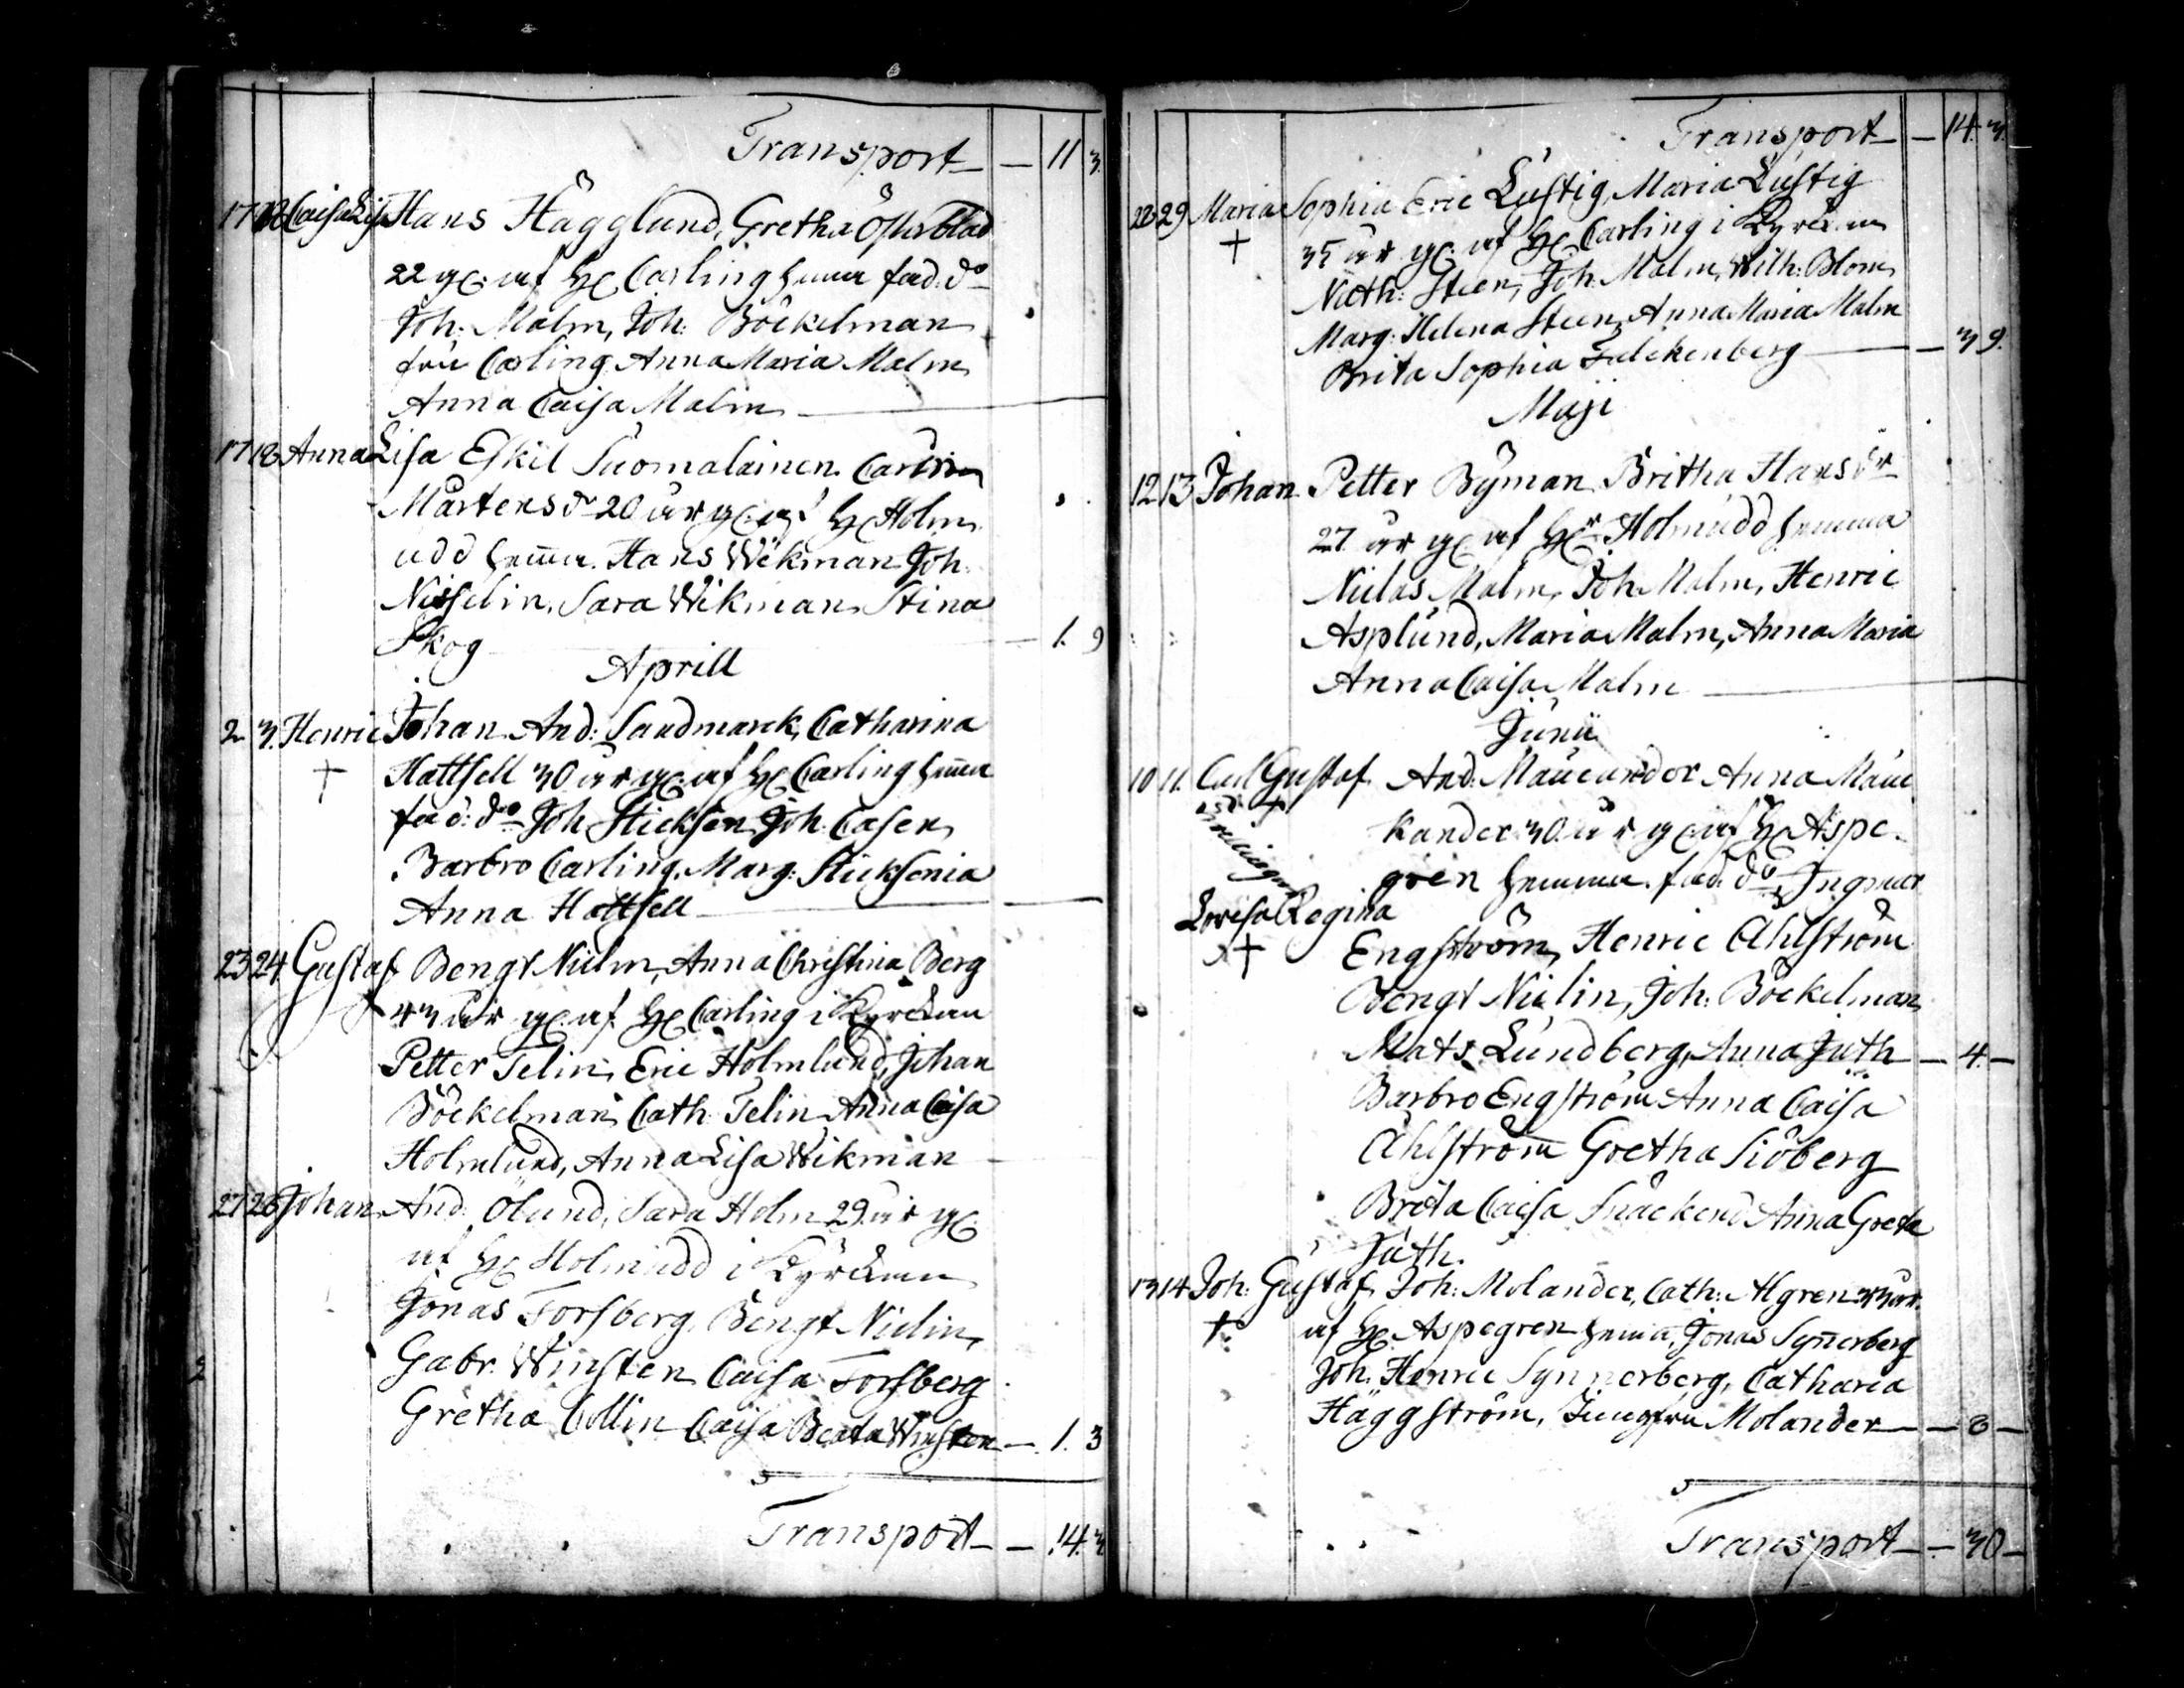 Transport — 11 3.
17 18 Caisa Lisa Hans Hägglund, Gretha Österblad
22 gl. af Hr Carling hemma fad. do
Joh: Malm, Joh: Böckelman
fru Carling Anna Maria Malm
Anna Caisa Malm
17 18 Anna Lisa Eskil Suomalainen. Carin
Mårtens dr 20 år gl. af Hr Holm
udd hem̄a. Hans Wikman Joh.
Nisselin, Sara Wikman, Stina
Skog — 1. 9
Aprill
2 3. Henric Johan And: Sandmarck, Catharina
† Hattsell 30 år gl. af Hr Carling hem̄a
fad: do Joh Sticksen, Joh: Casen
Barbro Carling, Marg: Sticksenia
Anna Hattsell
23 24 Gustaf Bengt Nielin, Anna Christina Berg
43 år gl. af Hr Carling i Kyrckan
Petter Telin, Eric Holmlund, Johan
Böckelman, Cath: Telin, Anna Caisa
Holmlund, Anna Lisa Wikman
27 28 Johan And: Ölund, Sara Holm 29 år gl.
af Hr Holmudd i Kyrckan
Jonas Forsberg, Bengt Nielin,
Gabr. Winsten Caisa Forsberg
Gretha Collin Caisa Beata Winsten — 1. 3
Transport — 14. 3
Transport — 14. 3.
28 29 Maria Sophia Eric Lustig, Maria Lustig
† 35 år gl. af Hr Carling i Kyrckan
Math: Steen, Joh: Malm, Wilh: Blom
Marg: Helena Steen, Anna Maria Malm
Brita Sophia Falckenberg — 3 9.
Maji
12 13 Johan Petter Byman Britha Hans dr
27 år gl. af Hr Holmudd hemma
Niclas Malm, Joh Malm, Henric
Asplund, Maria Malm, Anna Maria
Anna Caisa Malm
Junii
10 11. Carl Gustaf And: Maucander Anna Mau
† kander 30 år gl. af Hr Aspe-
gren hemma. fad. do, Ingmar
Lovisa Regina
† Engström, Henric Åhlström
Bengt Nielin, Joh: Böckelman
Mats Lundberg, Anna Juth — 4. —
Barbro Engström Anna Caisa
Åhlström Gretha Siöberg
Brita Caisa Anna Greta
Juth.
13 14 Joh: Gustaf, Joh: Molander, Cath: Algren 33 år.
† af Hr Aspegren hem̄a, Jonas Syn̄erberg
Joh. Henric Synnerberg, Catharia
Häggström, Jungfru Molander — 8 —
Transport — 30 —